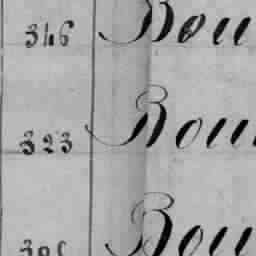 346 Bou
323 Bou
Bou